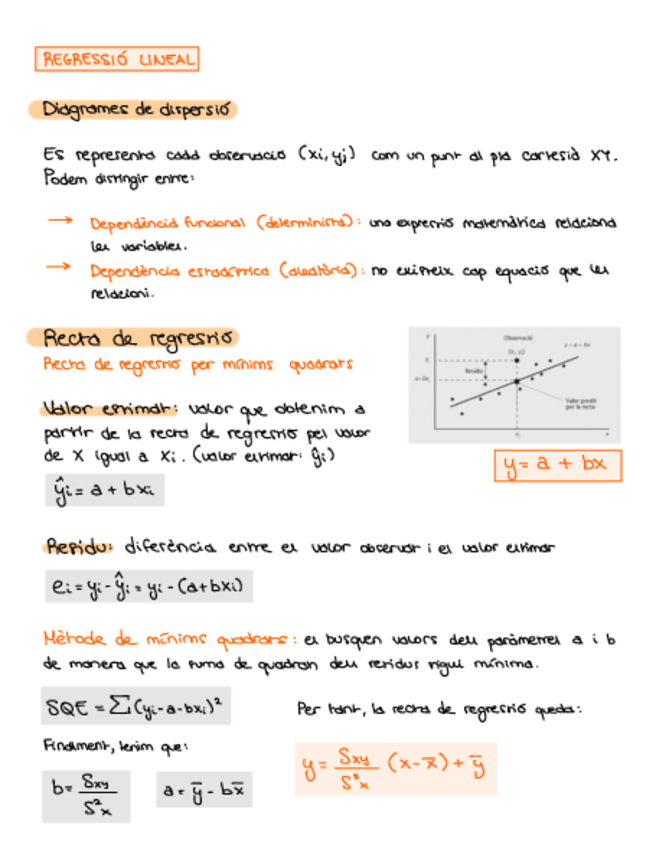 REGRESSIÓ LINEAL
Diagrames de dispersió
Es representa cada observació (xi, yj) com un punt al pla cartesià XY.
Podem distingir entre:
→ Dependència funcional (determinista): una expressió matemàtica relaciona
les variables.
→ Dependència estadística (aleatòria): no existeix cap equació que les
relacioni.
Recta de regressió
Recta de regressió per mínims quadrats
Valor estimat: valor que obtenim a
partir de la recta de regressió pel valor
de X igual a Xi. (valor estimat: ŷi)
ŷi = a + bxi
Y
Observació
(xi, yi)
y = a + bx
yi
Residu
a+bxi
Valor predit
per la recta
xi
x
y = a + bx
Residu: diferència entre el valor observat i el valor estimat
ei = yi - ŷi = yi - (a+bxi)
Mètode de mínims quadrats: es busquen valors dels paràmetres a i b
de manera que la suma de quadrats dels residus sigui mínima.
SQE = Σ(yi-a-bxi)²
Per tant, la recta de regressió queda:
Finalment, tenim que:
y = Sxy / S²x (x-x̄) + ȳ
b = Sxy / S²x
a = ȳ - bx̄